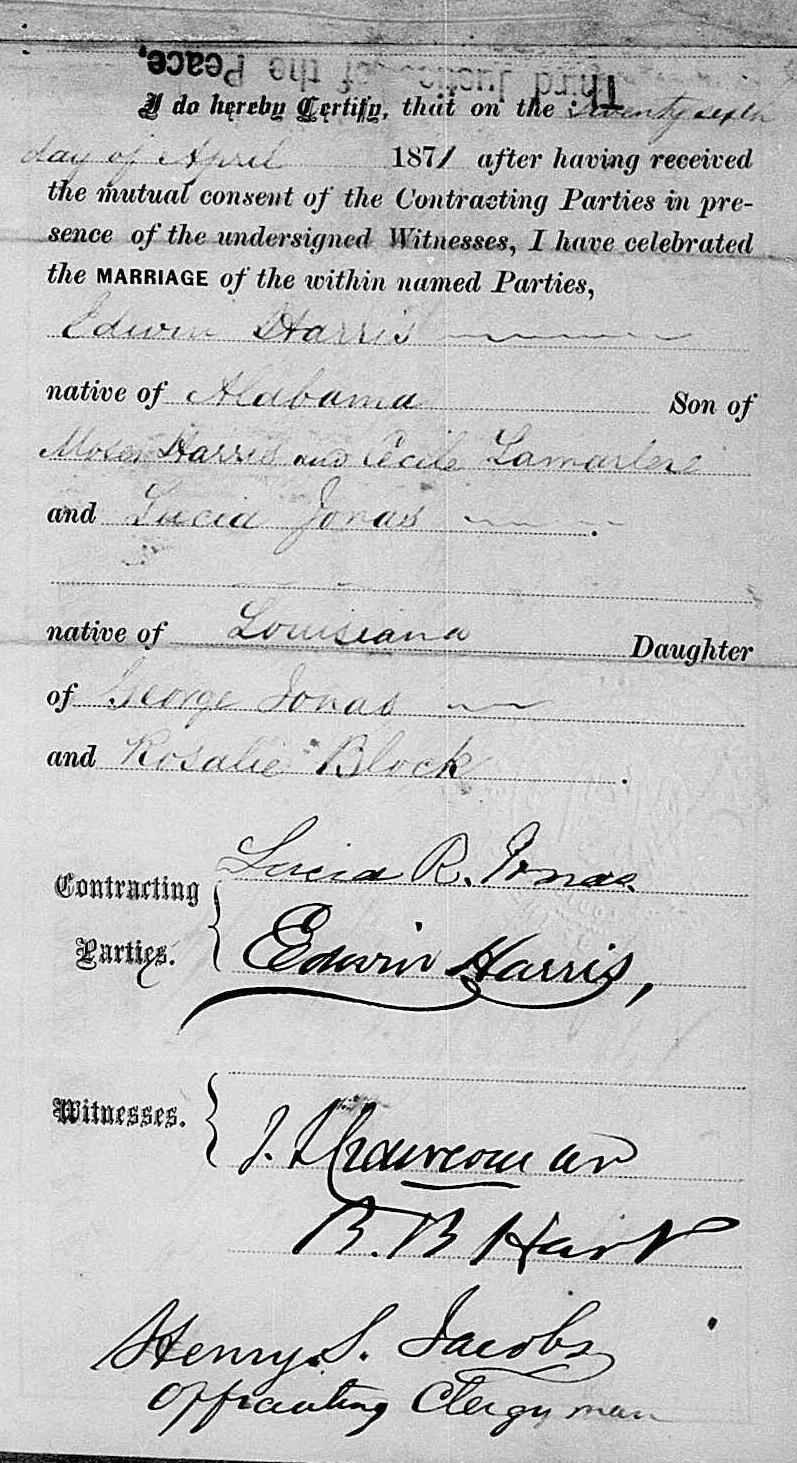 Third Justice of the Peace,
I do hereby Certify, that on the twenty sixth
day of April 1871 after having received
the mutual consent of the Contracting Parties in pre-
sence of the undersigned Witnesses, I have celebrated
the MARRIAGE of the within named Parties,
Edwin Harris
native of Alabama Son of
Moses Harris and Cecile
and Lucia Jonas .
native of Louisiana Daughter
of George Jonas
and Rosalie Block .
Contracting Parties.
Lucia R. Jonas
Edwin Harris,
Witnesses.
J.
B. B Hart
Henry S. Jacobs
Officiating Clergyman